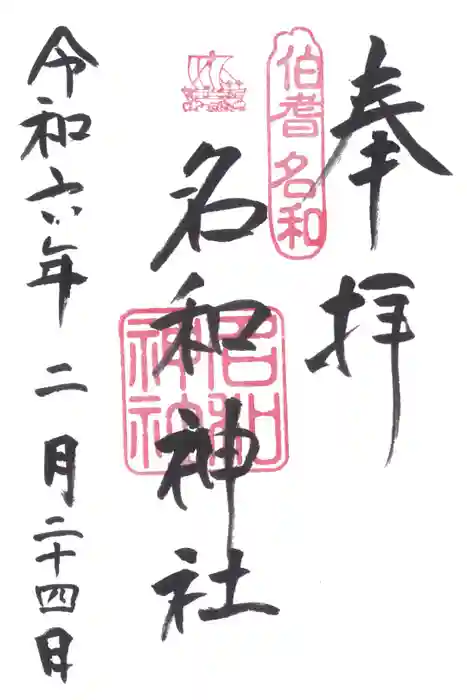 奉拝
伯耆名和
名和神社
名和神社
令和六年二月二十四日